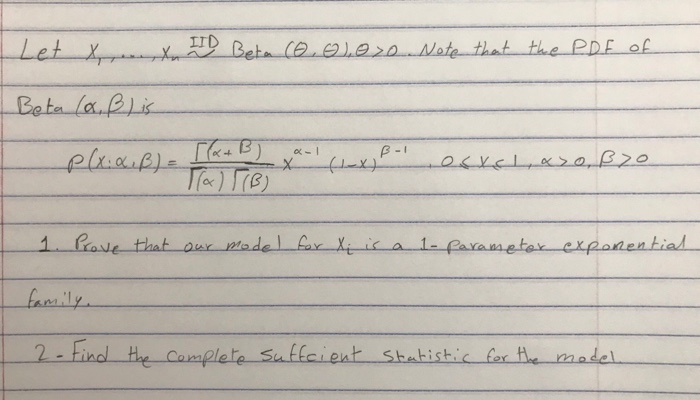 Let X₁, ..., Xₙ IID ~ Beta (θ, θ), θ>0. Note that the PDF of
Beta (α, β) is
P(x; α, β) = Γ(α+β) / Γ(α) Γ(β) x^(α-1) (1-x)^(β-1), 0≤x≤1, α>0, β>0
1. Prove that our model for Xᵢ is a 1-parameter exponential
family.
2-Find the complete suffcient statistic for the model.